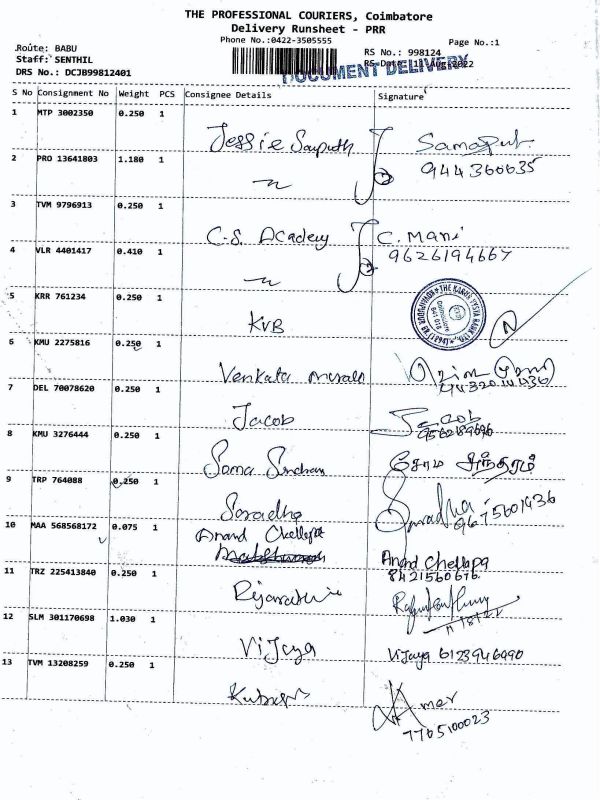 THE PROFESSIONAL COURIERS, Coimbatore
Delivery Runsheet - PRR
Phone No.:0422-3505555
Page No.:1
Route: BABU
Staff: SENTHIL
DRS No.: DCJB99812401
RS No.: 998124
RS Date: 11 Aug 2022
DOCUMENT DELIVERY
S No Consignment No Weight PCS Consignee Details Signature
1 MTP 3002350 0.250 1
Jessie Samputh
944360635
2 PRO 13641803 1.180 1
3 TVM 9796913 0.250 1
C.S. Academy C. Mani
9626194667
4 VLR 4401417 0.410 1
5 KRR 761234 0.250 1
KVB
6 KMU 2275816 0.250 1
Venkata
7 DEL 70078620 0.250 1
Jacob Jacob
9562189696
8 KMU 3276444 0.250 1
Soma Sundram சோம சுந்தரம்
9 TRP 764088 0.250 1
Saradha Saradha
9675601436
10 MAA 568568172 0.075 1
Anand Chellapa
Anand Chellapa
8421560676
11 TRZ 225413840 0.250 1
12 SLM 301170698 1.030 1
Vijaya Vijaya 6123946090
13 TVM 13208259 0.250 1
7705100023